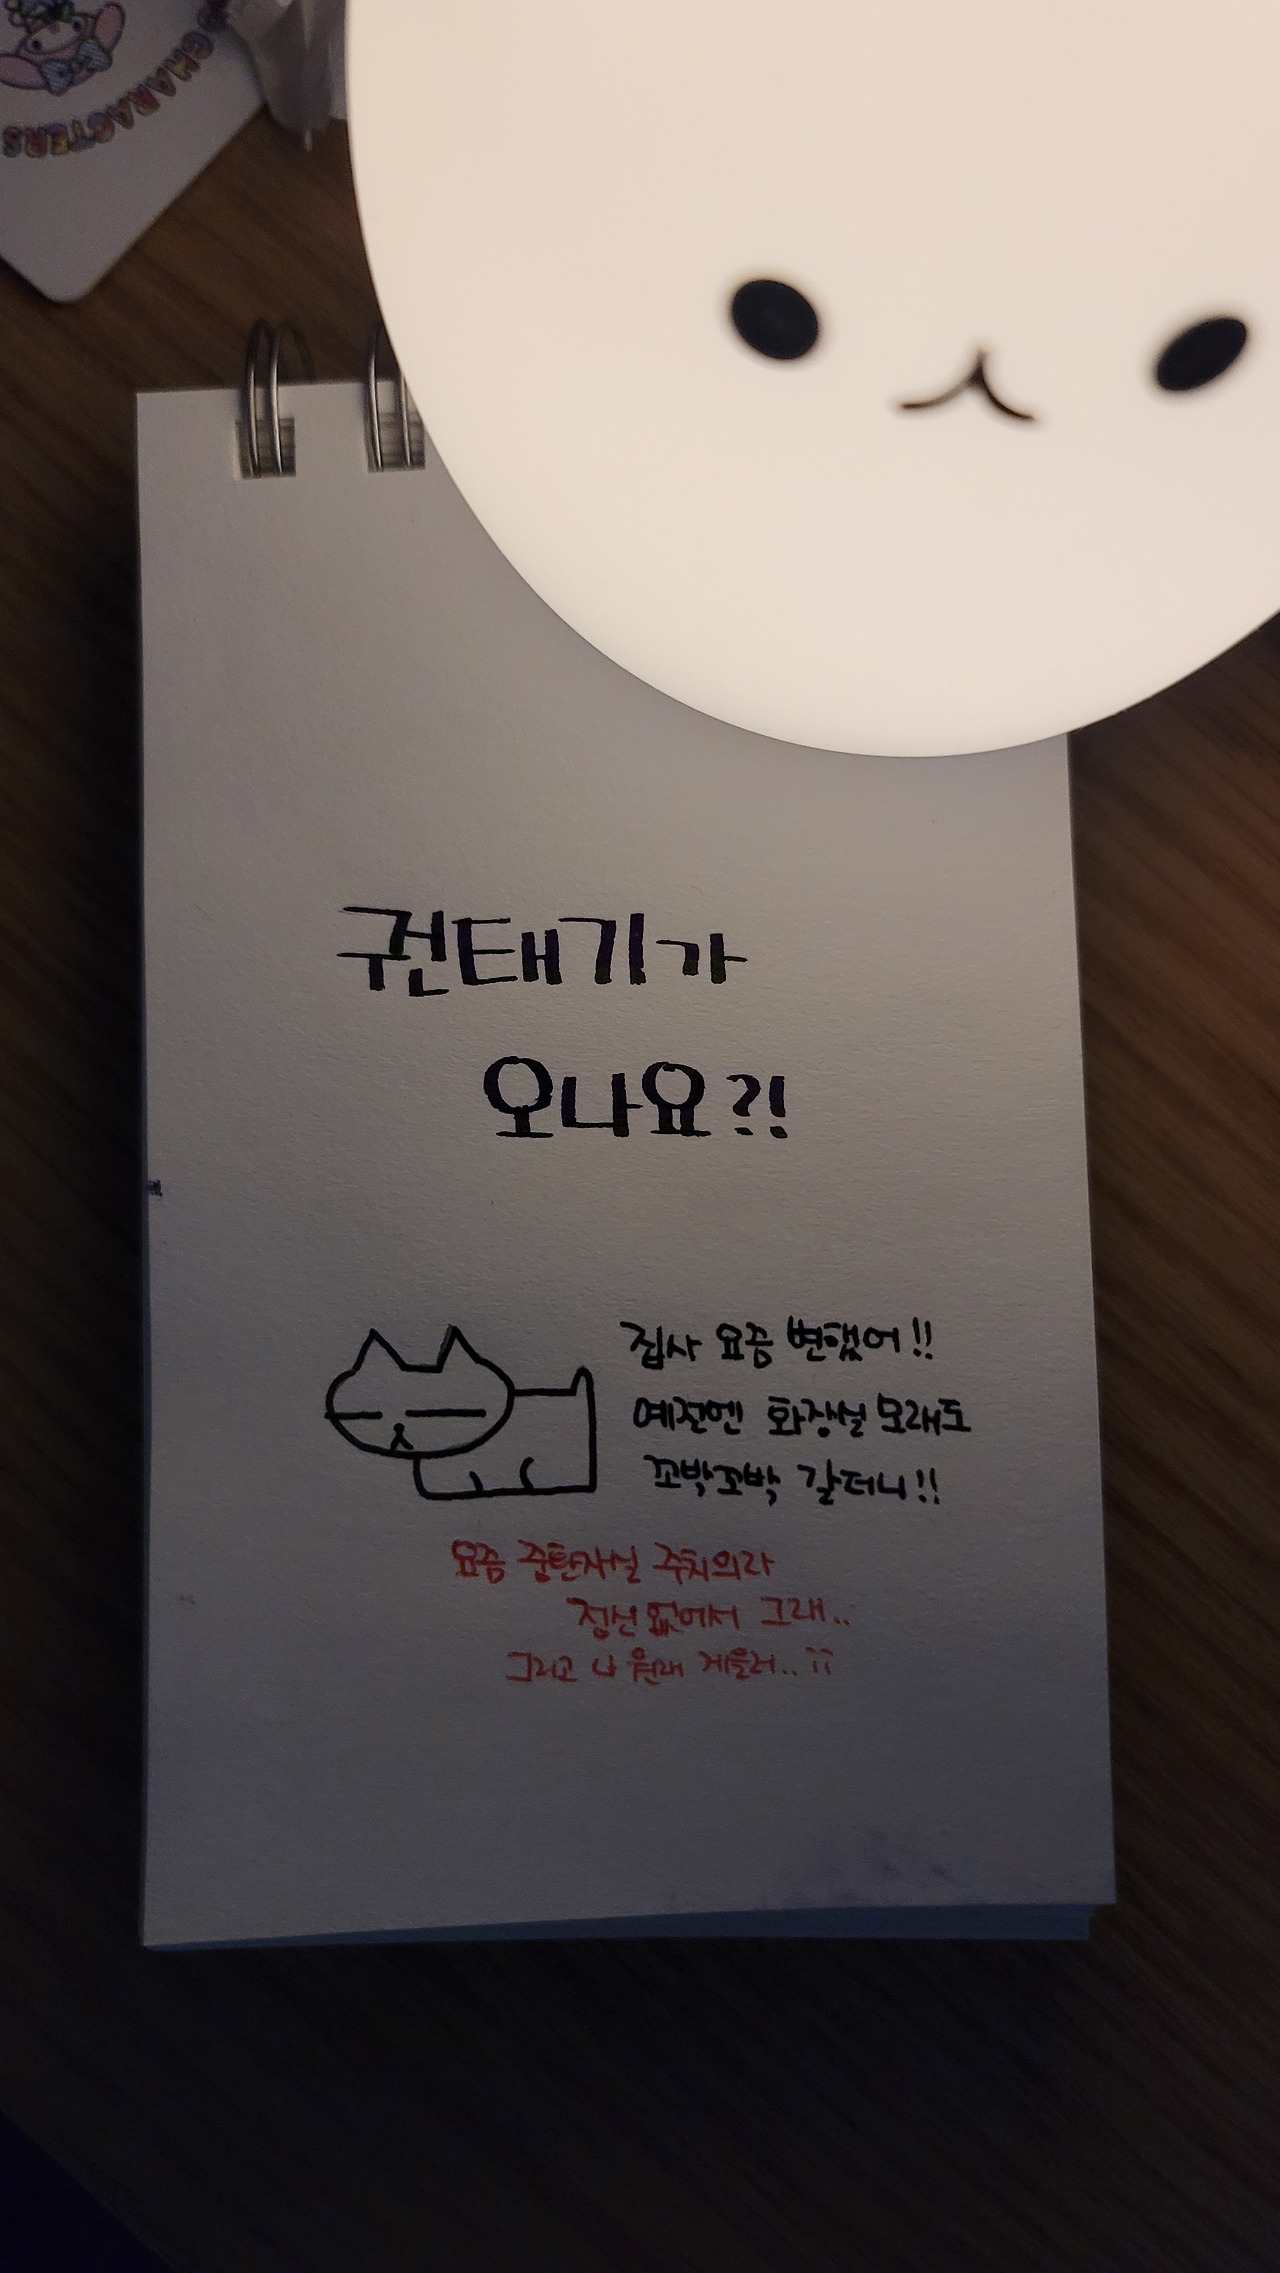 CHARACTERS
권태기가
오나요?!
집사 요즘 변했어!!
예전엔 화장실 모래도
꼬박꼬박 갈더니!!
요즘 중환자실 주치의라
정신 없어서 그래..
그리고 나 원래 게을러..ㅠㅠ